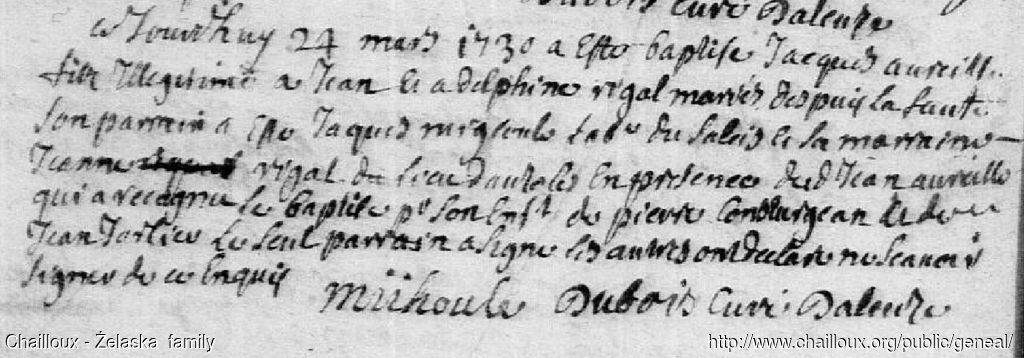 Dubois Curé Daleuze
ce Jourdhuy 24 mars 1730 a Este baptise Jacques aureille
fils Illegitime a Jean et a delphine rigal mariés despuis la faute
son parrain a Este Jaques migeoule lab^r du Salés et sa marraine
Jeanne rigal du lieu dauzoles En presence dud Jean aureille
qui a recognu le baptise p^r son Enf^t de pierre et de
Jean Tortice Le Seul parrain a signe les autres ont declare ne scavoir
signer de ce Enquis
Miihoule Dubois Curé Daleuze
Chailloux - Żelaska family
http://www.chailloux.org/public/geneal/